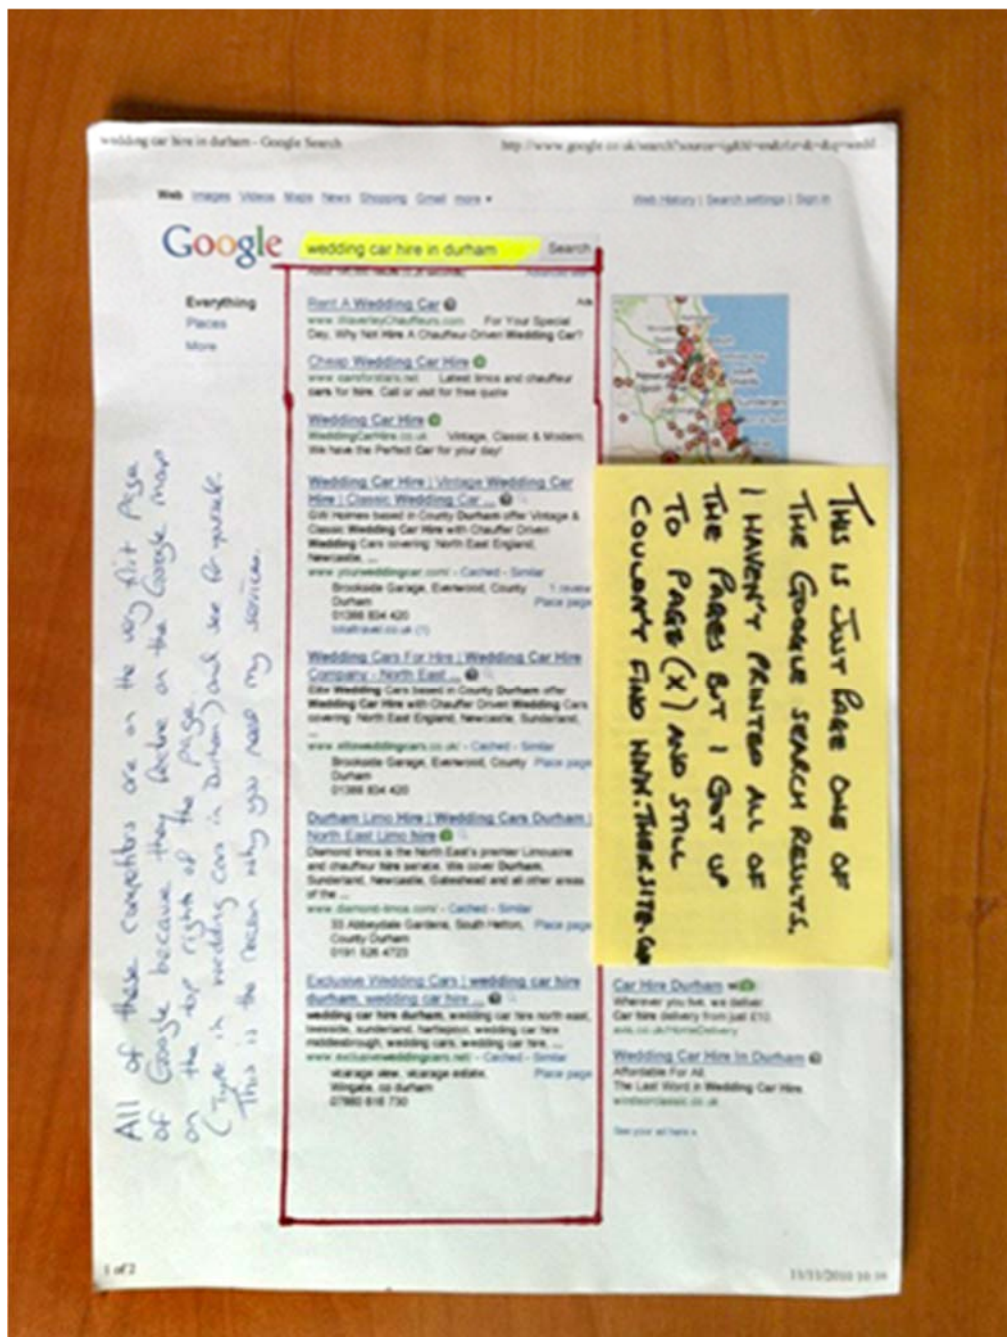 wedding car hire in durham - Google Search
Web Images Videos Maps News Shopping Gmail more
Web History | Search settings | Sign in
Google
wedding car hire in durham
Search
Everything
Places
More
Rent A Wedding Car
Ads
www.WaverleyChauffeurs.com For Your Special
Day, Why Not Hire A Chauffeur-Driven Wedding Car?
Cheap Wedding Car Hire
www.carsforstars.net Latest limos and chauffeur
cars for hire. Call or visit for free quote
Wedding Car Hire
WeddingCarHire.co.uk Vintage, Classic & Modern.
We have the Perfect Car for your day!
Wedding Car Hire | Vintage Wedding Car
Hire | Classic Wedding Car ...
GW Homes based in County Durham offer Vintage &
Classic Wedding Car Hire with Chauffer Driven
Wedding Cars covering: North East England,
Newcastle, ...
www.yourweddingcar.com/ - Cached - Similar
Brookside Garage, Evenwood, County
1 review
Durham
Place page
01388 834 420
totaltravel.co.uk (1)
Wedding Cars For Hire | Wedding Car Hire
Company - North East ...
Elite Wedding Cars based in County Durham offer
Wedding Car Hire with Chauffer Driven Wedding Cars
covering: North East England, Newcastle, Sunderland,
...
www.eliteweddingcars.co.uk/ - Cached - Similar
Brookside Garage, Evenwood, County
Place page
Durham
01388 834 420
Durham Limo Hire | Wedding Cars Durham |
North East Limo hire
Diamond limos is the North East's premier Limousine
and chauffeur hire service. We cover Durham,
Sunderland, Newcastle, Gateshead and all other areas
of the ...
www.diamond-limos.com/ - Cached - Similar
33 Abbeydale Gardens, South Hetton,
Place page
County Durham
0191 526 4723
Exclusive Wedding Cars | wedding car hire
durham, wedding car hire ...
wedding car hire durham, wedding car hire north east,
teesside, sunderland, hartlepool, wedding car hire
middlesbrough, wedding cars, wedding car hire, ...
www.exclusiveweddingcars.net/ - Cached - Similar
vicarage view, vicarage estate,
Place page
Wingate, co durham
07980 616 730
THIS IS JUST PAGE ONE OF
THE GOOGLE SEARCH RESULTS.
I HAVEN'T PRINTED ALL OF
THE PAGES BUT I GOT UP
TO PAGE (X) AND STILL
COULDN'T FIND WWW.THEIRSITE.COM
Car Hire Durham
Wherever you live, we deliver.
Car hire delivery from just £10.
avis.co.uk/HomeDelivery
Wedding Car Hire In Durham
Affordable For All.
The Last Word in Wedding Car Hire.
windsorclassic.co.uk
See your ad here »
All of these competitors are on the very first page
of Google because they feature on the Google map
on the top right of the page.
(Type in wedding cars in Durham) and see for yourself.
This is the reason why you need my services.
1 of 2